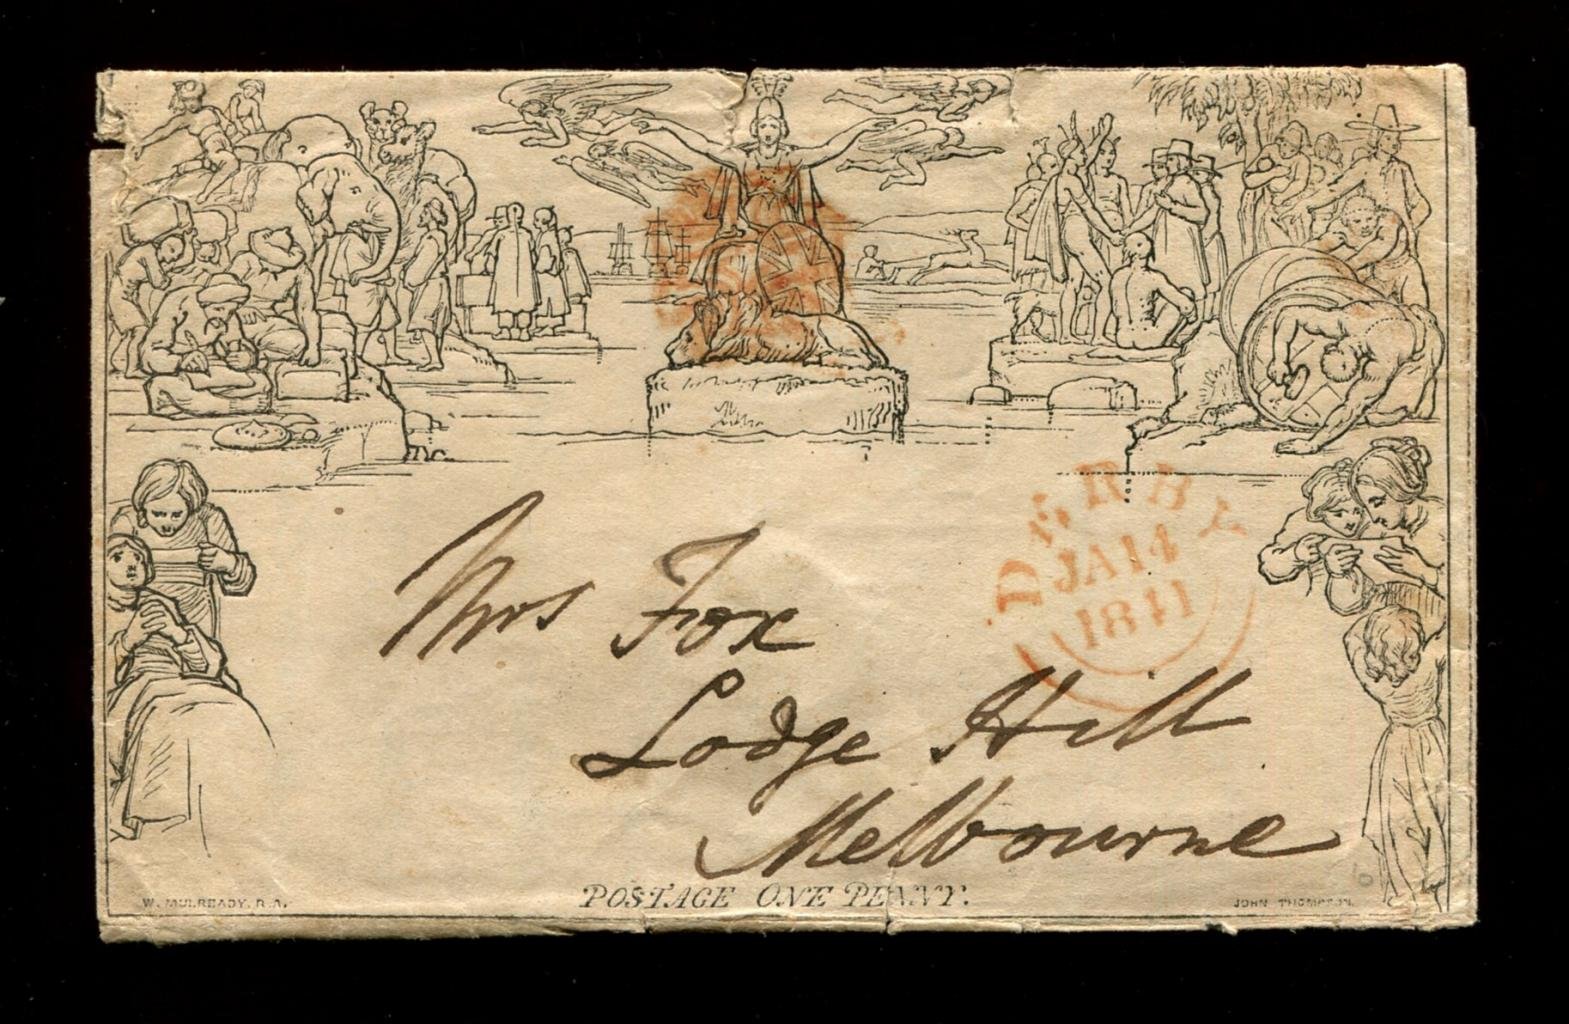 DERBY
JA 14
1841
Mrs Fox
Lodge Hill
Melbourne
POSTAGE ONE PENNY.
W. MULREADY. R.A.
JOHN THOMPSON.